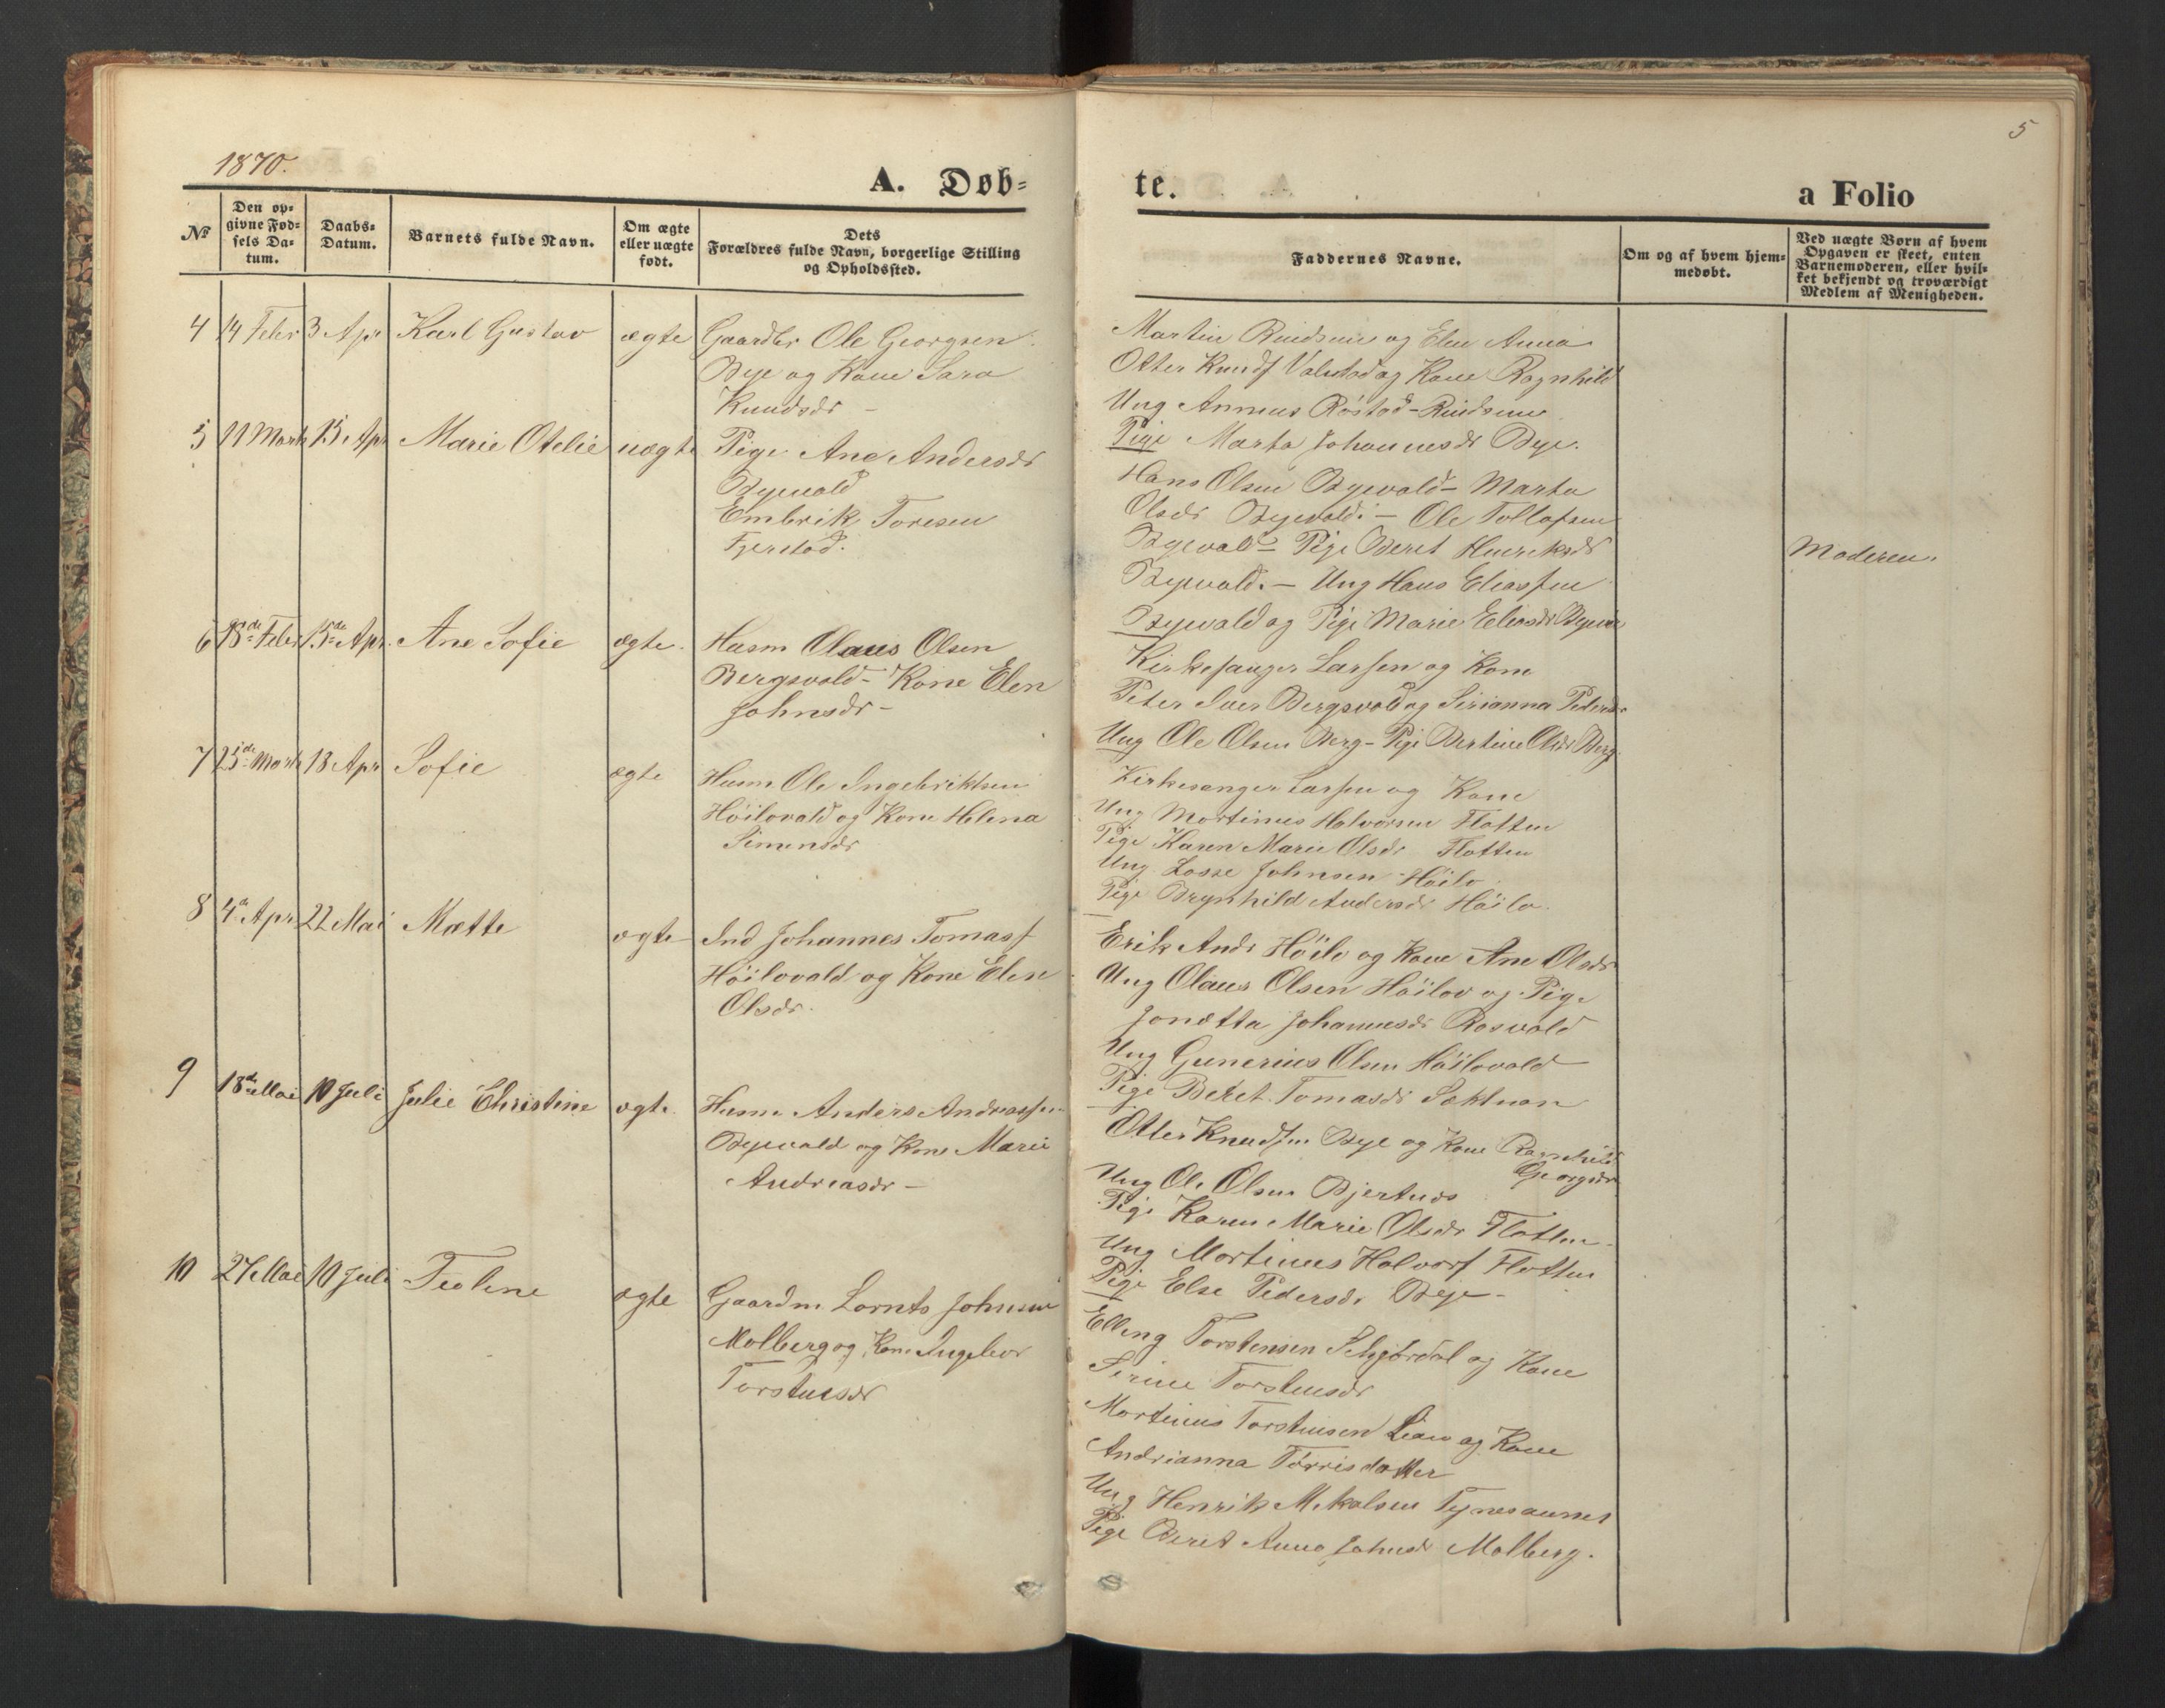 1870.
5
A. Døb=
te.
a Folio
No
Den op=
givne Fød=
sels Da=
tum.
Daabs=
Datum.
Barnets fulde Navn.
Om ægte
eller uægte
født.
Dets
Forældres fulde Navn, borgerlige Stilling
og Opholdssted.
Faddernes Navne.
Om og af hvem hjem=
medøbt.
Ved uægte Børn af hvem
Opgaven er skeet, enten
Barnemoderen, eller hvil=
ket bekjendt og troværdigt
Medlem af Menigheden.
4 14 Febr 3 Apr Karl Gustav ægte Gaardbr Ole Georgsen
Bye og Kone Sara
Knudsdr -
Martin og Elen Anna
Otter Knudsf og Kone Ragnhild
Ung Annæus Røstad -
Pige Marta Johannesdr Bye.
5 11 Marts 15 Apr Marie Otelie uægte Pige Ane Andersdr
Byevald
Embrik Toresen
Fjerstad.
Hans Olsen Byevald - Marta
Olsdr Byevald. - Ole Tollefsen
Byevald - Pige Beret Henriksdr
Byevald. - Ung Hans Eliassen
Byevald og Pige Marie Eliasdr
Moderen.
6 15de Apr. Ane Sofie ægte. Husm Olaus Olsen
Bergsvald - Kone Elen
Johnsdr -
Kirkesanger Larsen og Kone
Peter Iver Bergsvald og Sirianna Pedersdr
Ung Ole Olsen Berg - Pige Bertine Olsdr Berg.
7 25de Marts 18 Apr Sofie ægte Husm. Ole Ingebriktsen
Høilovald og Kone Helena
Simensdr
Kirkesanger Larsen og Kone
Ung Martinus Halvorsen Flotten
Pige Karen Marie Olsdr Flotten
Ung Losse Johnsen Høilo
Pige Brynhild Andersdr Høilo.
8 4de Apr 22 Mai Mætte ægte Ind Johannes Tomass
Høilovald og Kone Elen
Olsdr.
Erik Andr Høilo og Kone Ane Olsdr
Ung Olaus Olsen Høilov og Pige
Jonetta Johannesdr Rosvald
Ung Gunerius Olsen Høilovald
Pige Beret Tomasdr
9 18de Mai 10 Juli Julie Christine ægte Husm Anders Andreassen
Byevald og Kone Marie
Andreasdr -
Otter Knudsen Bye og Kone Ragnhild
Georgsdr
Ung Ole Olsen Bjertnes
Pige Karen Marie Olsdr Flotten
Ung Martinus Halvors Flotten
Pige Else Pedersdr Bye -
10 27 Mai 10 Juli Teoline ægte Gaardm. Lornts Johnsen
Molberg og Kone Ingebor
Torstensdr
Elling Torstensen og Kone
Sirine Torstensdr
Martinus Torstensen og Kone
Andrianna Torrisdatter
Ung Henrik Mikalsen
Pige Beret Anna Johnsdr Molberg.